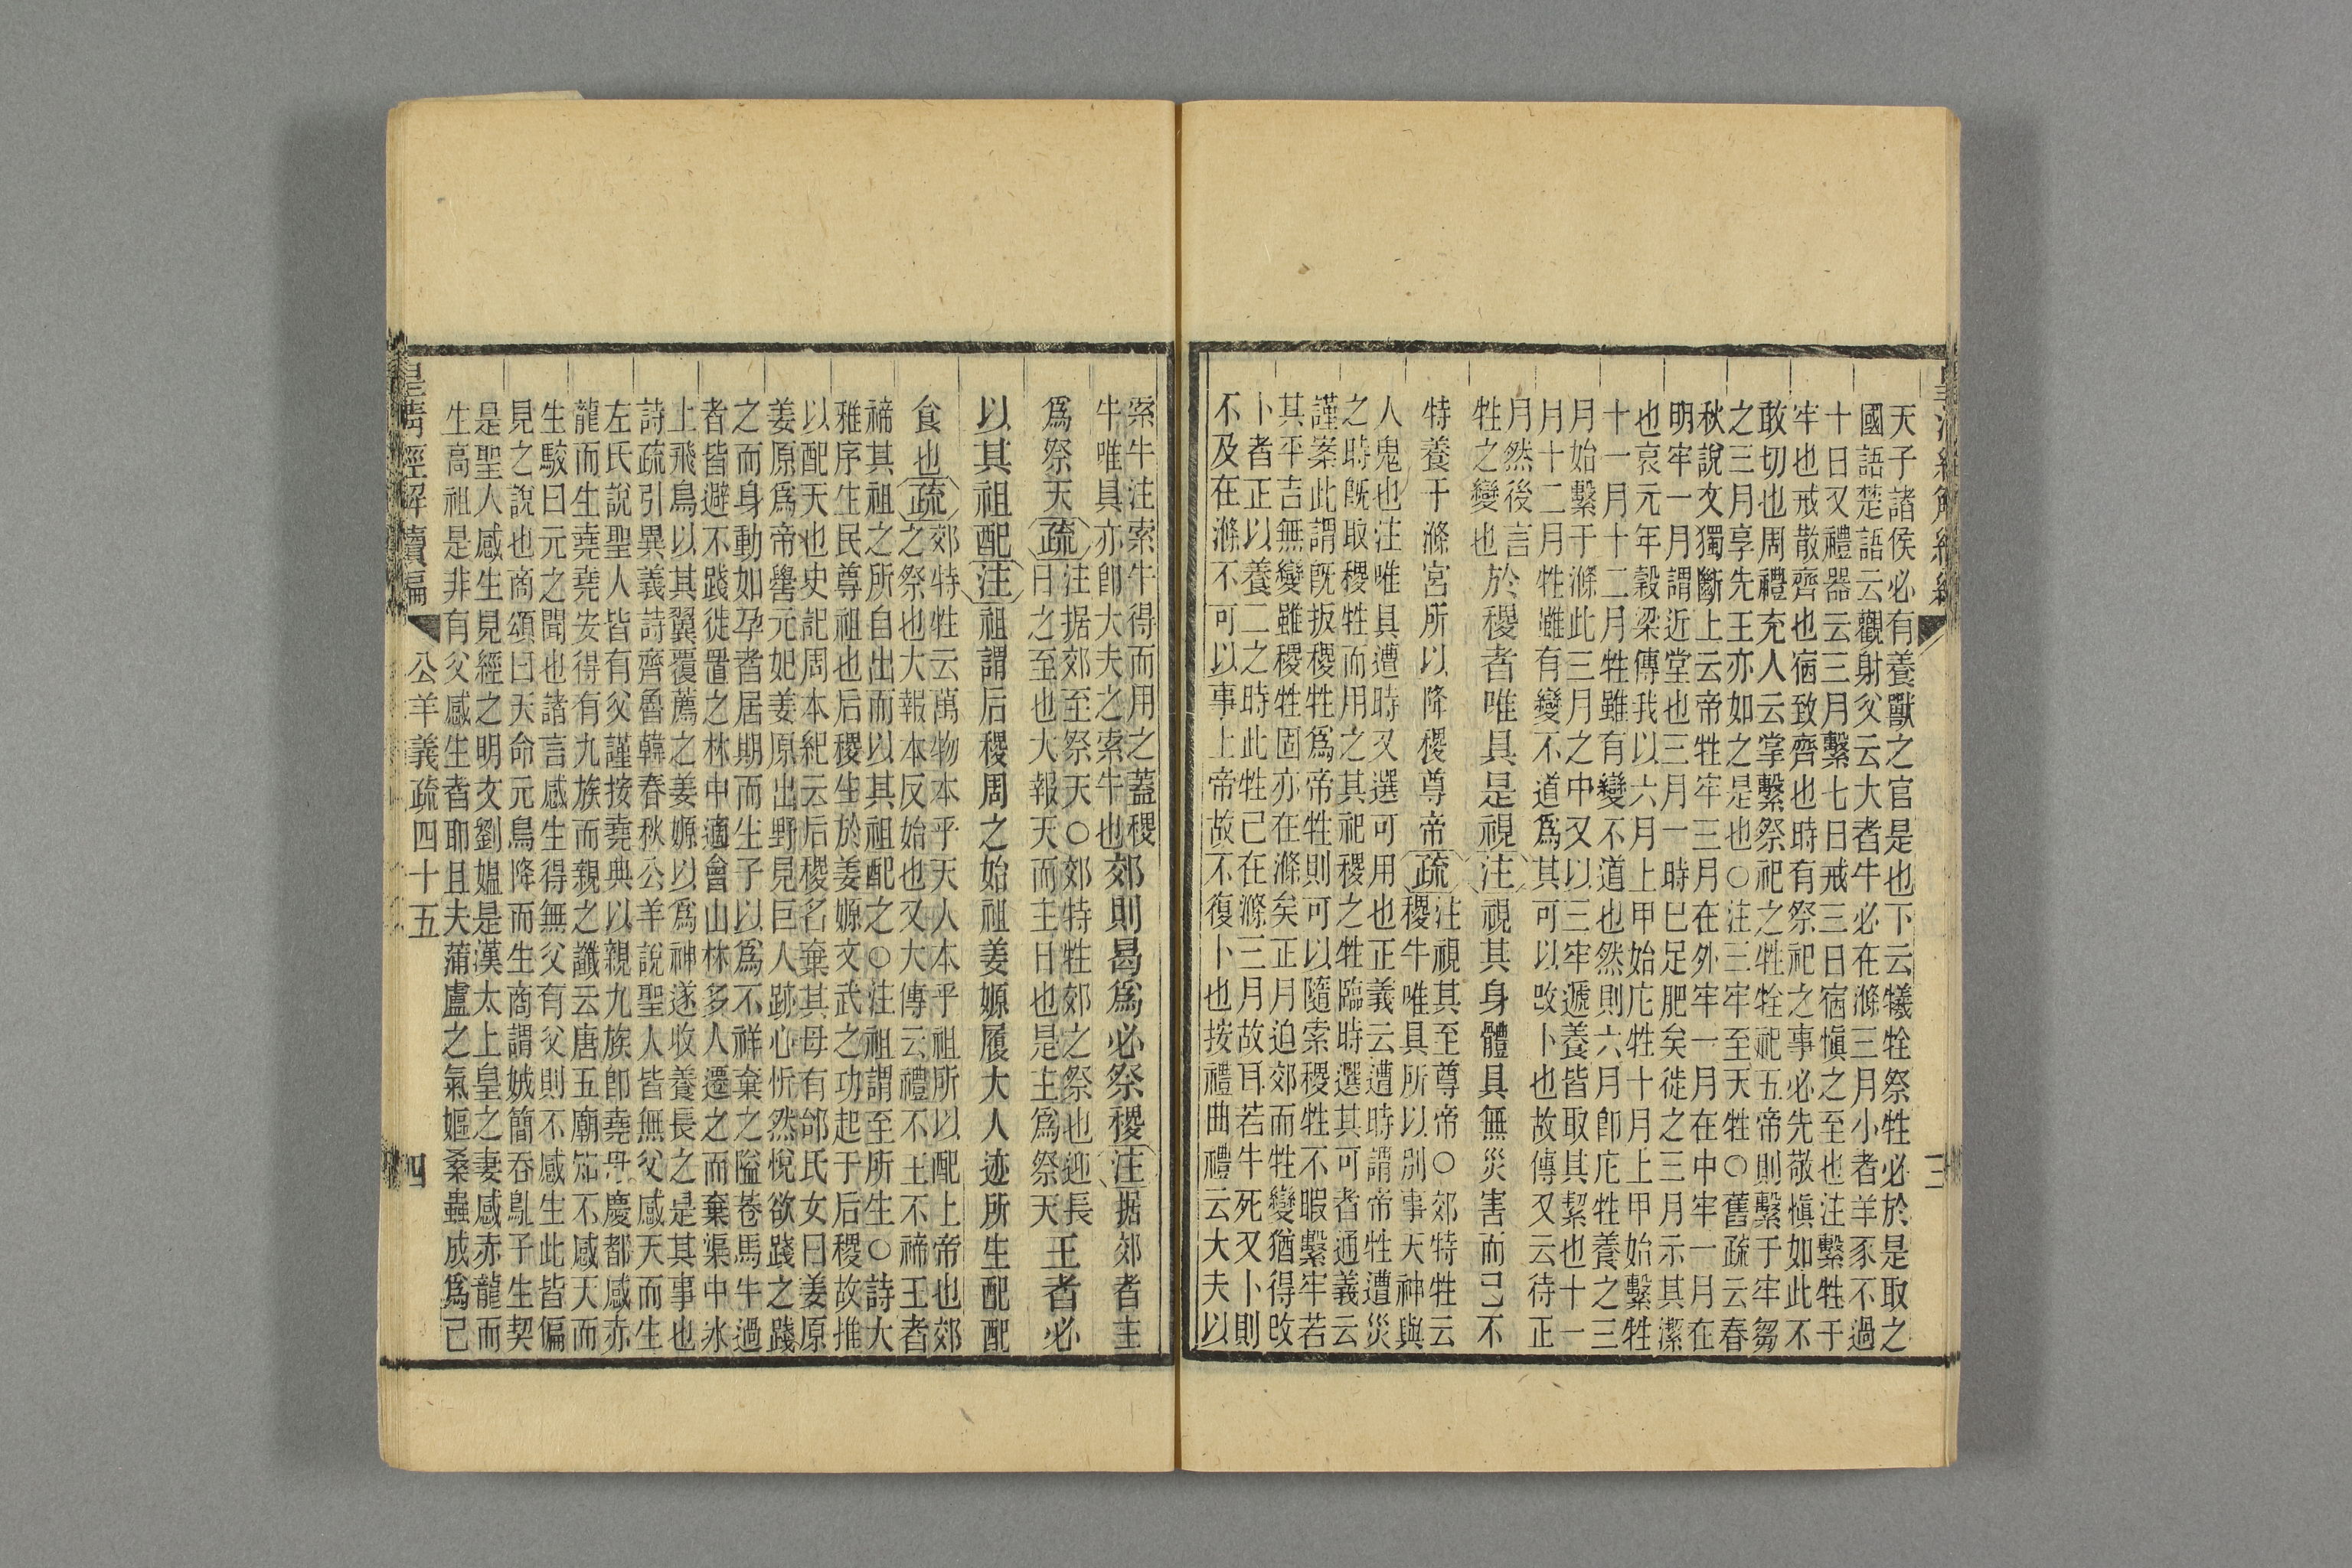 天子諸侯必有養獸之官是也下云犧牷祭牲必於是取之
國語楚語云觀射父云大者牛必在滌三月小者羊豕不過
十日又禮器云三月繫七日戒三日宿愼之至也注繫牲于
牢也戒散齊也宿致齊也時有祭祀之事必先敬愼如此不
敢切也周禮充人云掌繫祭祀之牲牷祀五帝則繫于牢芻
之三月享先王亦如之是也○注三牢至天牲○舊疏云春
秋說文獨斷上云帝牲牢三月在外牢一月在中牢一月在
明牢一月謂近堂也三月一時已足肥矣徒之三月示其潔
也哀元年穀梁傳我以六月上甲始庀牲十月上甲始繫牲
十一月十二月牲雖有變不道也然則六月卽庀牲養之三
月始繫于滌此三月之中又以三牢遞養皆取其絜也十一
月十二月牲雖有變不道爲其可以改卜也故傳又云待正
月然後言
牲之變也
於稷者唯具是視
注
視其身體具無災害而已不
特養于滌宮所以降稷尊帝
疏
注視其至尊帝○郊特牲云
稷牛唯具所以別事天神與
人鬼也注唯具遭時又選可用也正義云遭時謂帝牲遭災
之時旣取稷牲而用之其祀稷之牲臨時選其可者通義云
謹案此謂旣扳稷牲爲帝牲則可以隨索稷牲不暇繫牢若
其平吉無變雖稷牲固亦在滌矣正月迫郊而牲變猶得改
卜者正以養二之時此牲已在滌三月故耳若牛死又卜則
不及在滌不可以事上帝故不復卜也按禮曲禮云大夫以
索牛注索牛得而用之蓋稷
牛唯具亦卽大夫之索牛也
郊則曷爲必祭稷
注
据郊者主
爲祭天
疏
注据郊至祭天○郊特牲郊之祭也迎長
日之至也大報天而主日也是主爲祭天
王者必
以其祖配
注
祖謂后稷周之始祖姜嫄履大人迹所生配配
食也
疏
郊特牲云萬物本乎天人本乎祖所以配上帝也郊
之祭也大報本反始也又大傳云禮不王不禘王者
禘其祖之所自出而以其祖配之○注祖謂至所生○詩大
雅序生民尊祖也后稷生於姜嫄文武之功起于后稷故推
以配天也史記周本紀云后稷名棄其母有邰氏女曰姜原
姜原爲帝嚳元妃姜原出野見巨人跡心忻然悅欲踐之踐
之而身動如孕者居期而生子以爲不祥棄之隘巷馬牛過
者皆避不踐徙置之林中適會山林多人遷之而棄渠中冰
上飛鳥以其翼覆薦之姜嫄以爲神遂收養長之是其事也
詩疏引異義詩齊魯韓春秋公羊說聖人皆無父感天而生
左氏說聖人皆有父謹按堯典以親九族卽堯母慶都感赤
龍而生堯堯安得有九族而親之讖云唐五廟知不感天而
生駿曰元之聞也諸言感生得無父有父則不感生此皆偏
見之說也商頌曰天命元鳥降而生商謂娀簡吞鳦子生契
是聖人感生見經之明文劉媼是漢太上皇之妻感赤龍而
生高祖是非有父感生者耶且夫蒲盧之氣嫗桑蟲成爲己
皇淸經解續編
公羊義疏四十五
四